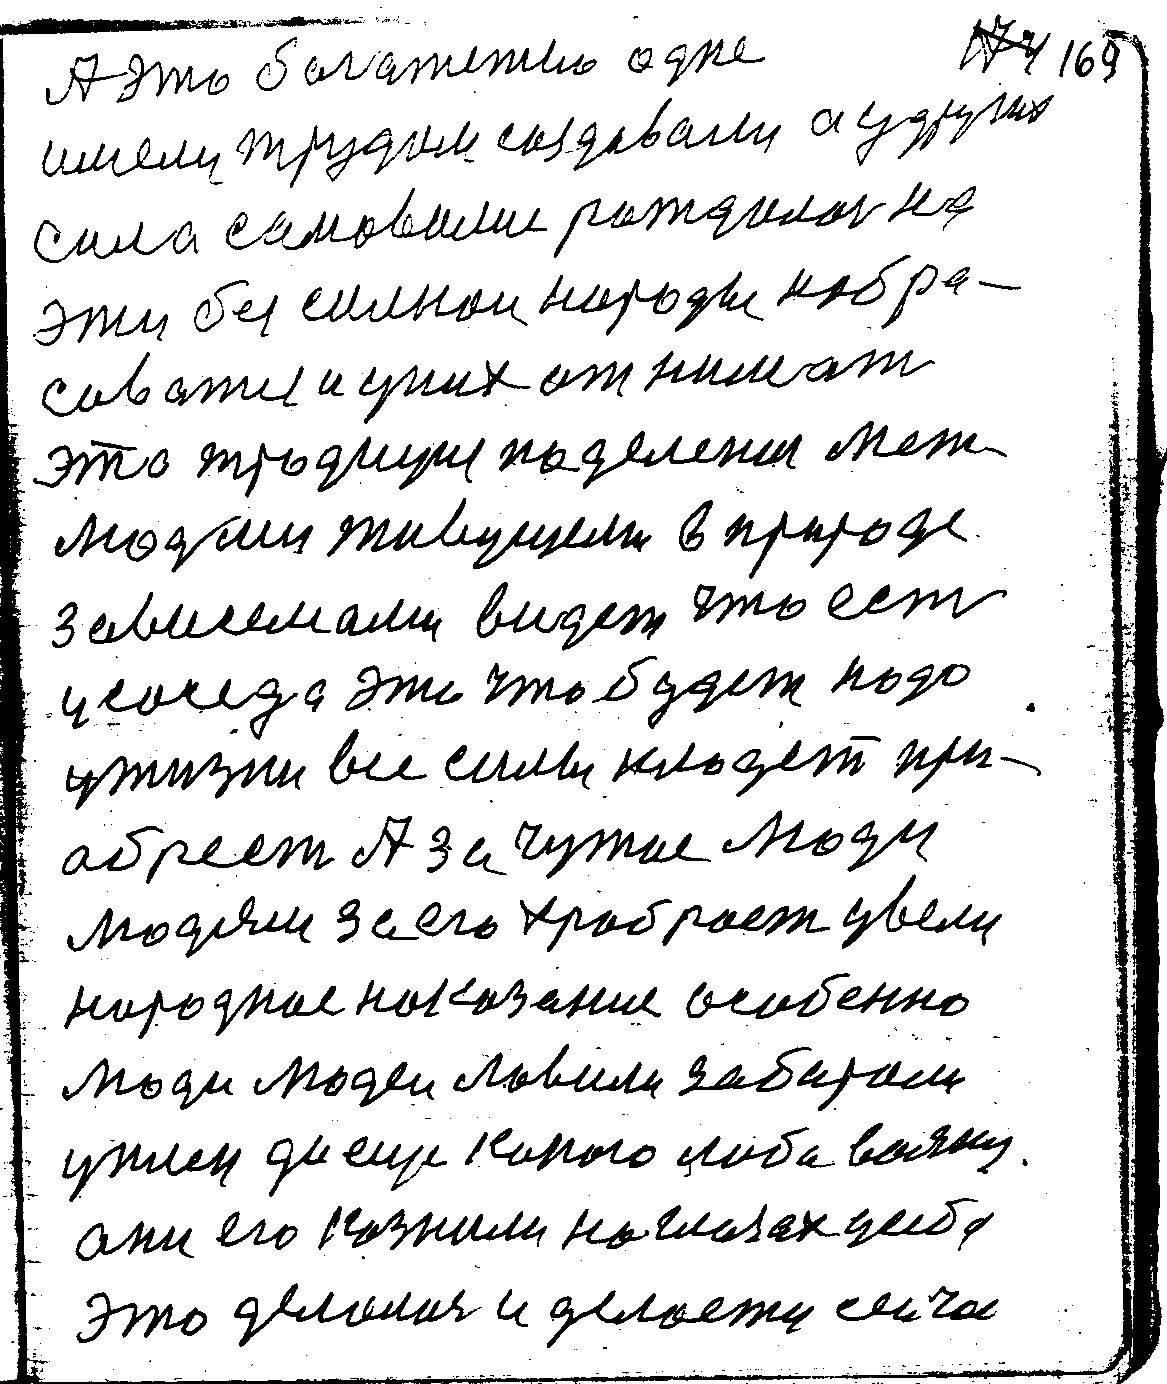 169
А это богатство одне
имели трудом создавали а у других
сила самоволие рождалась на
эти бессилнои народы набра-
соватся и у них отнимат
это традиции поделения меж
людми живущеми в природе
зависемами видет что ест
у соседа это что будет надо
у жизни все силы кладет при-
обреест А за чужое люди
людям за его храброст ввели
народное наказание особенно
люди людеи ловили забирали
у плен да еще какого либо вояку
они его казнили на глазах у себя
это делалося и делаети сеичас